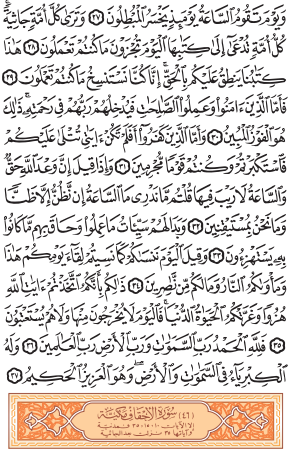 وَيَوْمَ تَقُومُ السَّاعَةُ يَوْمَئِذٍ يَخْسَرُ الْمُبْطِلُونَ ٢٧ وَتَرَىٰ كُلَّ أُمَّةٍ جَاثِيَةً
كُلُّ أُمَّةٍ تُدْعَىٰ إِلَىٰ كِتَابِهَا الْيَوْمَ تُجْزَوْنَ مَا كُنتُمْ تَعْمَلُونَ ٢٨ هَٰذَا
كِتَابُنَا يَنطِقُ عَلَيْكُم بِالْحَقِّ إِنَّا كُنَّا نَسْتَنسِخُ مَا كُنتُمْ تَعْمَلُونَ ٢٩
فَأَمَّا الَّذِينَ ءَامَنُوا وَعَمِلُوا الصَّالِحَاتِ فَيُدْخِلُهُمْ رَبُّهُمْ فِي رَحْمَتِهِ ذَٰلِكَ
هُوَ الْفَوْزُ الْمُبِينُ ٣٠ وَأَمَّا الَّذِينَ كَفَرُوا أَفَلَمْ تَكُنْ ءَايَاتِي تُتْلَىٰ عَلَيْكُمْ
فَاسْتَكْبَرْتُمْ وَكُنتُمْ قَوْمًا مُّجْرِمِينَ ٣١ وَإِذَا قِيلَ إِنَّ وَعْدَ اللَّهِ حَقٌّ
وَالسَّاعَةُ لَا رَيْبَ فِيهَا قُلْتُم مَّا نَدْرِي مَا السَّاعَةُ إِن نَّظُنُّ إِلَّا ظَنًّا
وَمَا نَحْنُ بِمُسْتَيْقِنِينَ ٣٢ وَبَدَا لَهُمْ سَيِّئَاتُ مَا عَمِلُوا وَحَاقَ بِهِم مَّا كَانُوا
بِهِ يَسْتَهْزِءُونَ ٣٣ وَقِيلَ الْيَوْمَ نَنسَاكُمْ كَمَا نَسِيتُمْ لِقَاءَ يَوْمِكُمْ هَٰذَا
وَمَأْوَاكُمُ النَّارُ وَمَا لَكُم مِّن نَّاصِرِينَ ٣٤ ذَٰلِكُم بِأَنَّكُمُ اتَّخَذْتُمْ ءَايَاتِ اللَّهِ
هُزُوًا وَغَرَّتْكُمُ الْحَيَاةُ الدُّنْيَا فَالْيَوْمَ لَا يُخْرَجُونَ مِنْهَا وَلَا هُمْ يُسْتَعْتَبُونَ
٣٥ فَلِلَّهِ الْحَمْدُ رَبِّ السَّمَاوَاتِ وَرَبِّ الْأَرْضِ رَبِّ الْعَالَمِينَ ٣٦ وَلَهُ
الْكِبْرِيَاءُ فِي السَّمَاوَاتِ وَالْأَرْضِ وَهُوَ الْعَزِيزُ الْحَكِيمُ ٣٧
(٤٦) سورة الاحقاف مكية
إلا الآيات ١٠ و ١٥ و ٣٥ فمدنية
وآياتها ٣٥ نزلت بعد الجاثية